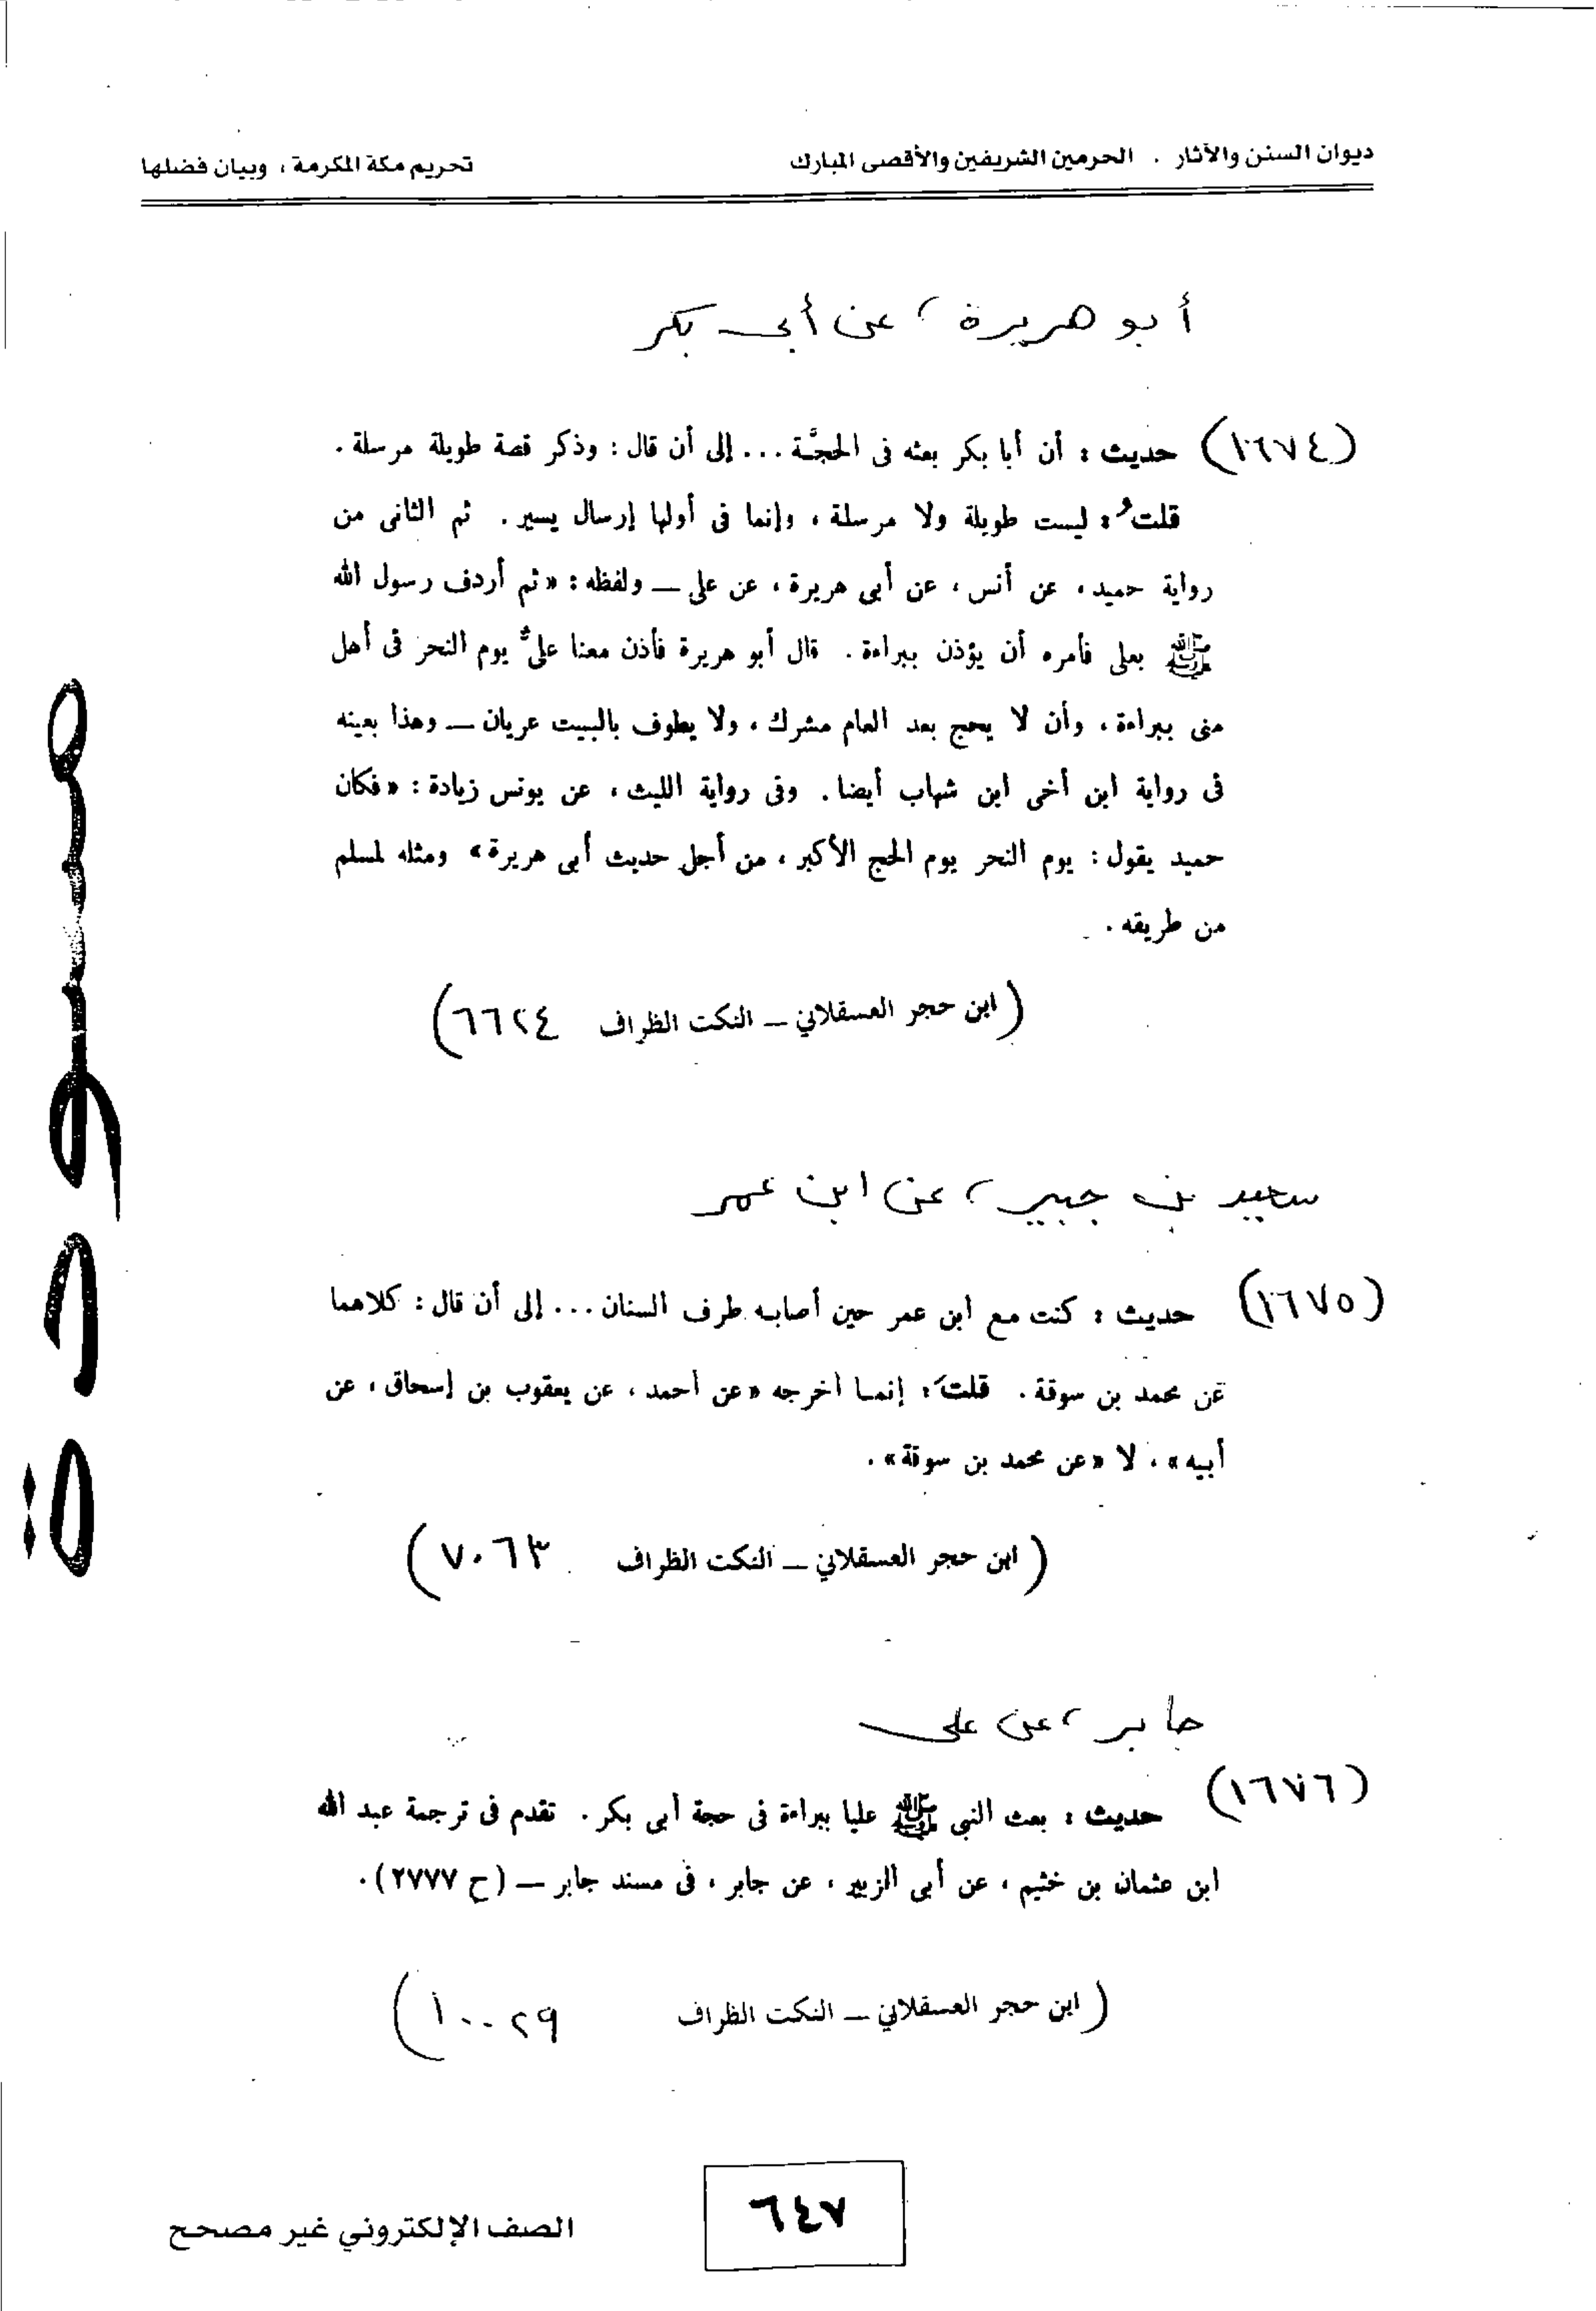 ديوان السنن والآثار . الحرمين الشريفين والأقصى المبارك
تحريم مكة المكرمة ، وبيان فضلها
أبو هريرة ، عن أبى بكر
(١٦٧٤) حديث : أن أبا بكر بعثه فى الحجَّة ... إلى أن قال : وذكر قصة طويلة مرسلة .
قلتُ : ليست طويلة ولا مرسلة ، وإنما فى أولها إرسال يسير . ثم الثانى من
رواية حميد ، عن أنس ، عن أبى هريرة ، عن على ــ ولفظه : «ثم أردف رسول الله
ﷺ بعلى فأمره أن يؤذن ببراءة . قال أبو هريرة فأذن معنا علىٌّ يوم النحر فى أهل
منى ببراءة ، وأن لا يحج بعد العام مشرك ، ولا يطوف بالبيت عريان ــ وهذا بعينه
فى رواية ابن أخى ابن شهاب أيضا . وفى رواية الليث ، عن يونس زيادة : «فكان
حميد يقول : يوم النحر يوم الحج الأكبر ، من أجل حديث أبى هريرة» ومثله لمسلم
من طريقه .
(ابن حجر العسقلاني ــ النكت الظراف ٦٦٢٤)
سعيد بن جبير ، عن ابن عمر
(١٦٧٥) حديث : كنت مع ابن عمر حين أصابه طرف السنان ... إلى أن قال : كلاهما
عن محمد بن سوقة . قلتَ : إنما أخرجه «عن أحمد ، عن يعقوب بن إسحاق ، عن
أبيه» ، لا «عن محمد بن سوقة» .
(ابن حجر العسقلاني ــ النكت الظراف ٧٠٦٣)
جابر ، عن على
(١٦٧٦) حديث : بعث النبى ﷺ عليا ببراءة فى حجة أبى بكر . تقدم فى ترجمة عبد الله
ابن عثمان بن خثيم ، عن أبى الزبير ، عن جابر ، فى مسند جابر ــ (ح ٢٧٧٧) .
(ابن حجر العسقلاني ــ النكت الظراف ١٠٠٢٩)
مسودة
٦٤٧
الصف الإلكتروني غير مصحح